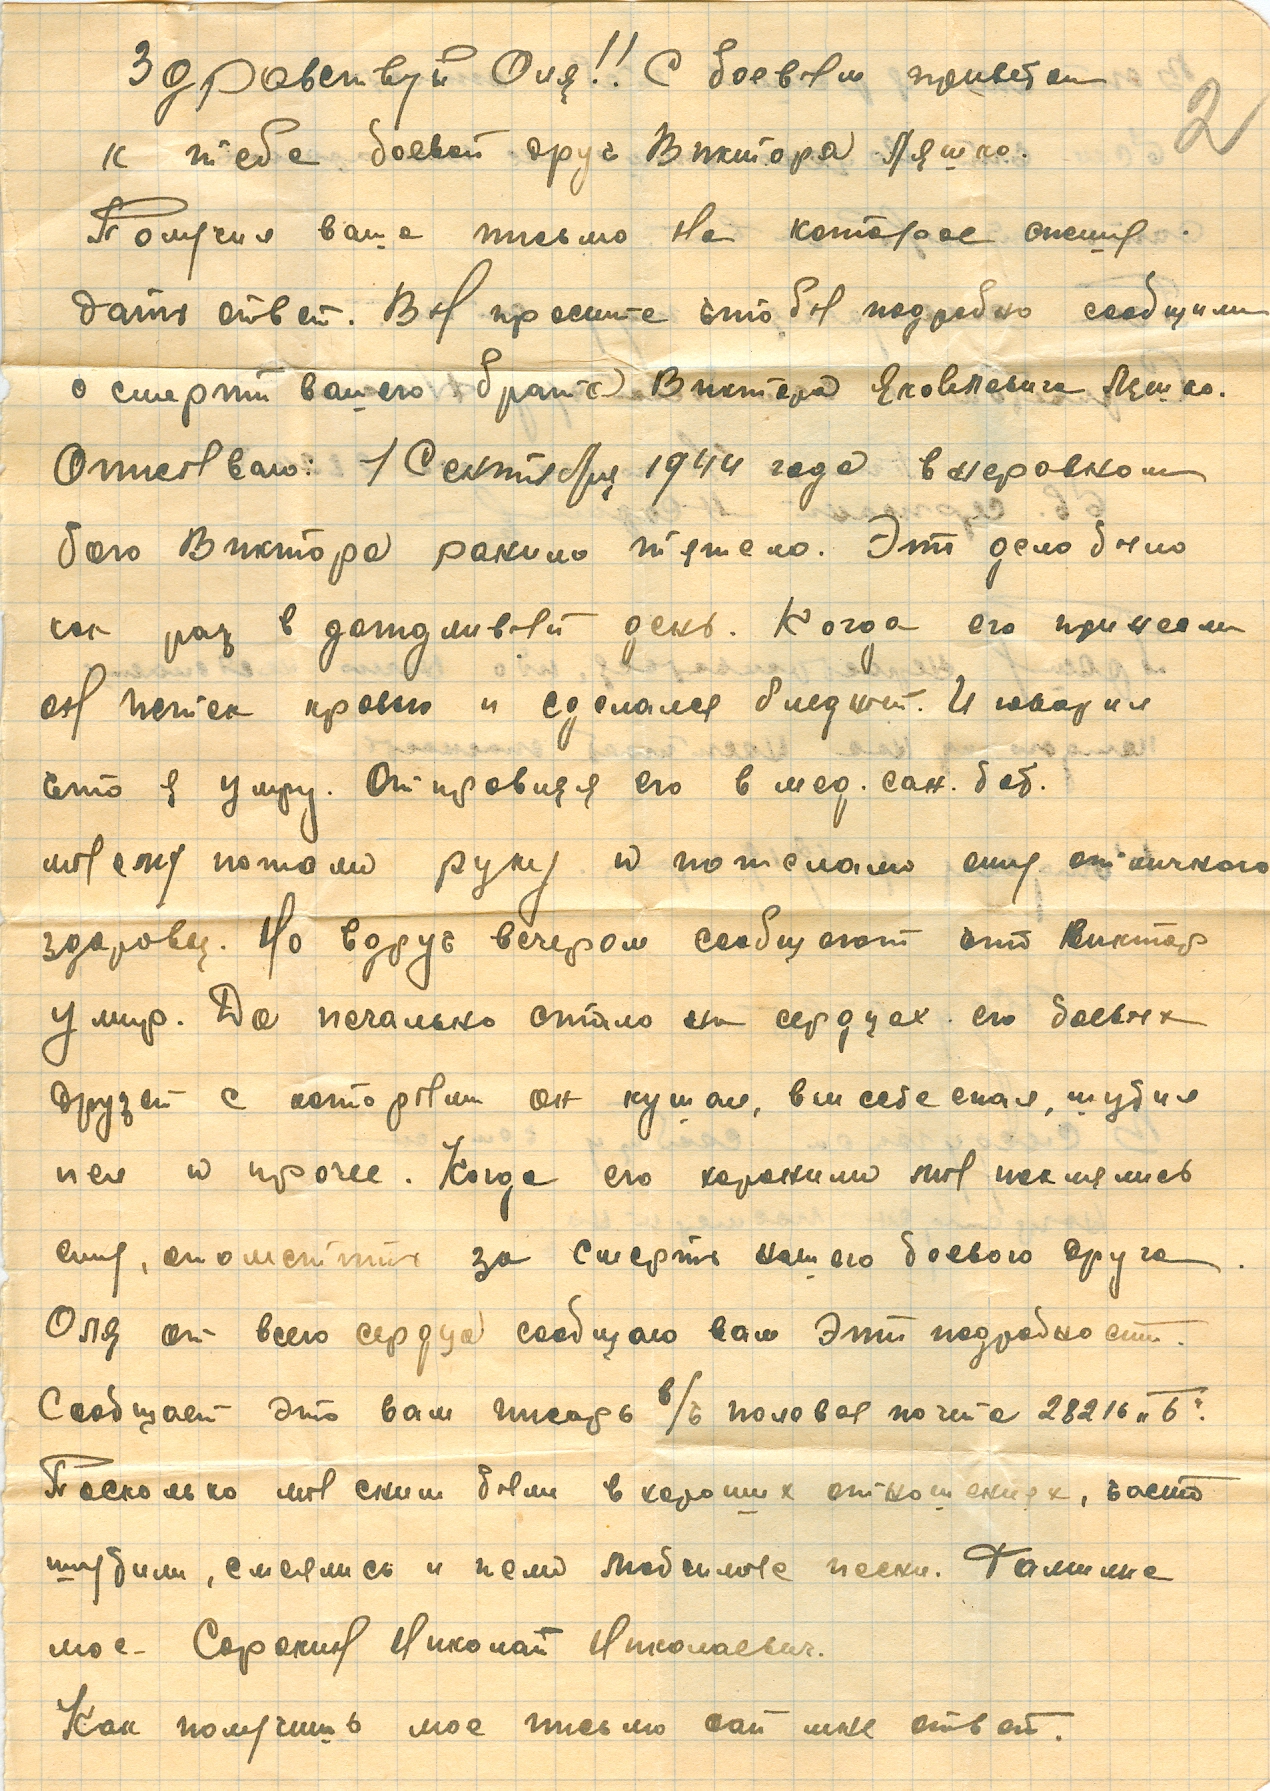 Здравствуй Оля!! С боевым приветом
2
к тебе боевой друг Виктора Ляшко.
Получил ваше письмо на которое спешу
дать ответ. Вы просите чтобы подробно сообщили
о смерти вашего брата Виктора Яковлевича Ляшко.
Описываю: 1 Сентября 1944 года в неровном
бою Виктора ранило тяжело. Эти дело было
как раз в дождливый день. Когда его принесли
он истек кровью и сделался бледный. И говорил
что я умру. Отправляя его в мед. сан. бат.
мы ему пожали руку и пожелали ему отличного
здоровья. Но вдруг вечером сообщают что Виктор
умир. Да печально стало на сердцах его боевых
друзей с которыми он кушал, вмисте спал, шутил
пел и прочее. Когда его хоронили мы поклялись
ему, отомстить за смерть нашего боевого друга.
Оля от всего сердца сообщаю вам эти подробности.
Сообщает это вам писарь в/ч полевая почта 28216 „Б".
Посколько мы сним были в хороших отношениях, часто
шутили, смеялись и пели любимые песни. Фамилие
мое - Сорокин Николай Николаевич.
Как получишь мое письмо дай мне ответ.